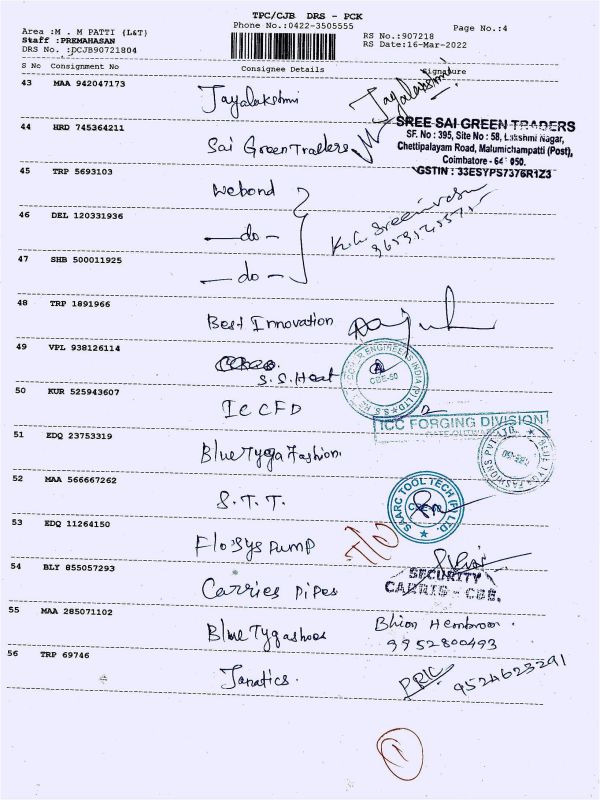 TPC/CJB DRS - PCK
Phone No.:0422-3505555
Area :M . M PATTI (L&T)
Staff :PREMAHASAN
DRS No. :DCJB90721804
RS No.:907218
RS Date:16-Mar-2022
Page No.:4
S No Consignment No Consignee Details Signature
43 MAA 942047173
Jayalakshmi Jayalakshmi
44 HRD 745364211
Sai Green Traders
SREE SAI GREEN TRADERS
SF. No : 395, Site No : 58, Lakshmi Nagar,
Chettipalayam Road, Malumichampatti (Post),
Coimbatore - 641 050.
GSTIN : 33ESYPS7376R1Z3
45 TRP 5693103
Webond
46 DEL 120331936
—do— K.G. Sreenivasan
47 SHB 500011925
—do—
48 TRP 1891966
Best Innovation
49 VPL 938126114
S.S. Heat
CBE-50
50 KUR 525943607
ICCFD
ICC FORGING DIVISION
51 EDQ 23753319
Blue Tyga Fashion
52 MAA 566667262
S.T.T.
SAARC TOOL TECH (P) LTD.
53 EDQ 11264150
Flosys pump
54 BLY 855057293
Carries Pipes
SECURITY
CARRIS - CBE.
55 MAA 285071102
Blue Tygashoes
Bhion Hembrom.
9952800493
56 TRP 69746
Janatics. PRIC 9524623291
1